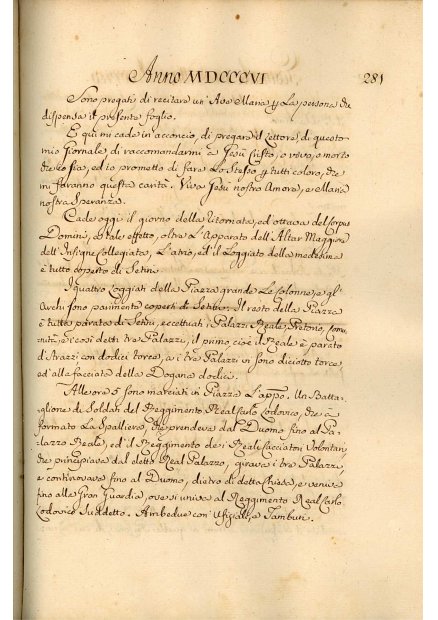 Anno MDCCCVI 281
Sono pregati di recitare un' Ave Maria p La persona che
dispensa il presente foglio.
E qui mi cade in acconcio, di pregare il Lettore di questo
mio Giornale di raccomandarmi a Jesù Cristo, o vivo, o morto
che io sia, ed io prometto di fare Lo Stesso p tutti coloro, che
mi faranno questa carità. Viva Jesù nostro Amore, e Maria
nostra Speranza.
Cade oggi il giorno della Ritornata, ed ottava del Corpus
Domini, ed a tale effetto, oltre L'Apparato dell'Altar Maggiore
dell'Insigne Collegiata, L'atrio, ed il Loggiato della medesima
è tutto coperto di Setin.
I quattro Loggiati della Piazza grande Le Colonne, e gl'
Archi sono parimente coperti di Setin. Il resto della Piazza
è tutto parata di Setin, eccettuati i Palazzi Reale, Pretorio, Comu
nità, e i così detti tre Palazzi, il primo cioè il Reale è parato
d'Arazzi con dodici torce, a i tre Palazzi vi sono diciotto torce,
ed alla facciata della Dogana dodici.
Alle ore 5 sono marciati in Piazza L'appo. Un Batta-
glione di Soldati del Reggimento Real Carlo Lodovico, che à
formato La Spalliera, che prendeva dal Duomo fino al Pa-
lazzo Reale, ed il Reggimento de i Reali Cacciatori Volontari
che principiava dal detto Real Palazzo, girava i tre Palazzi,
e continovava fino al Duomo, dietro di detta Chiesa, e veniva
fino alla Gran Guardia, ove si univa al Reggimento Real Carlo
Lodovico Suddetto. Ambedue con' Ufiziali, e Tamburi.